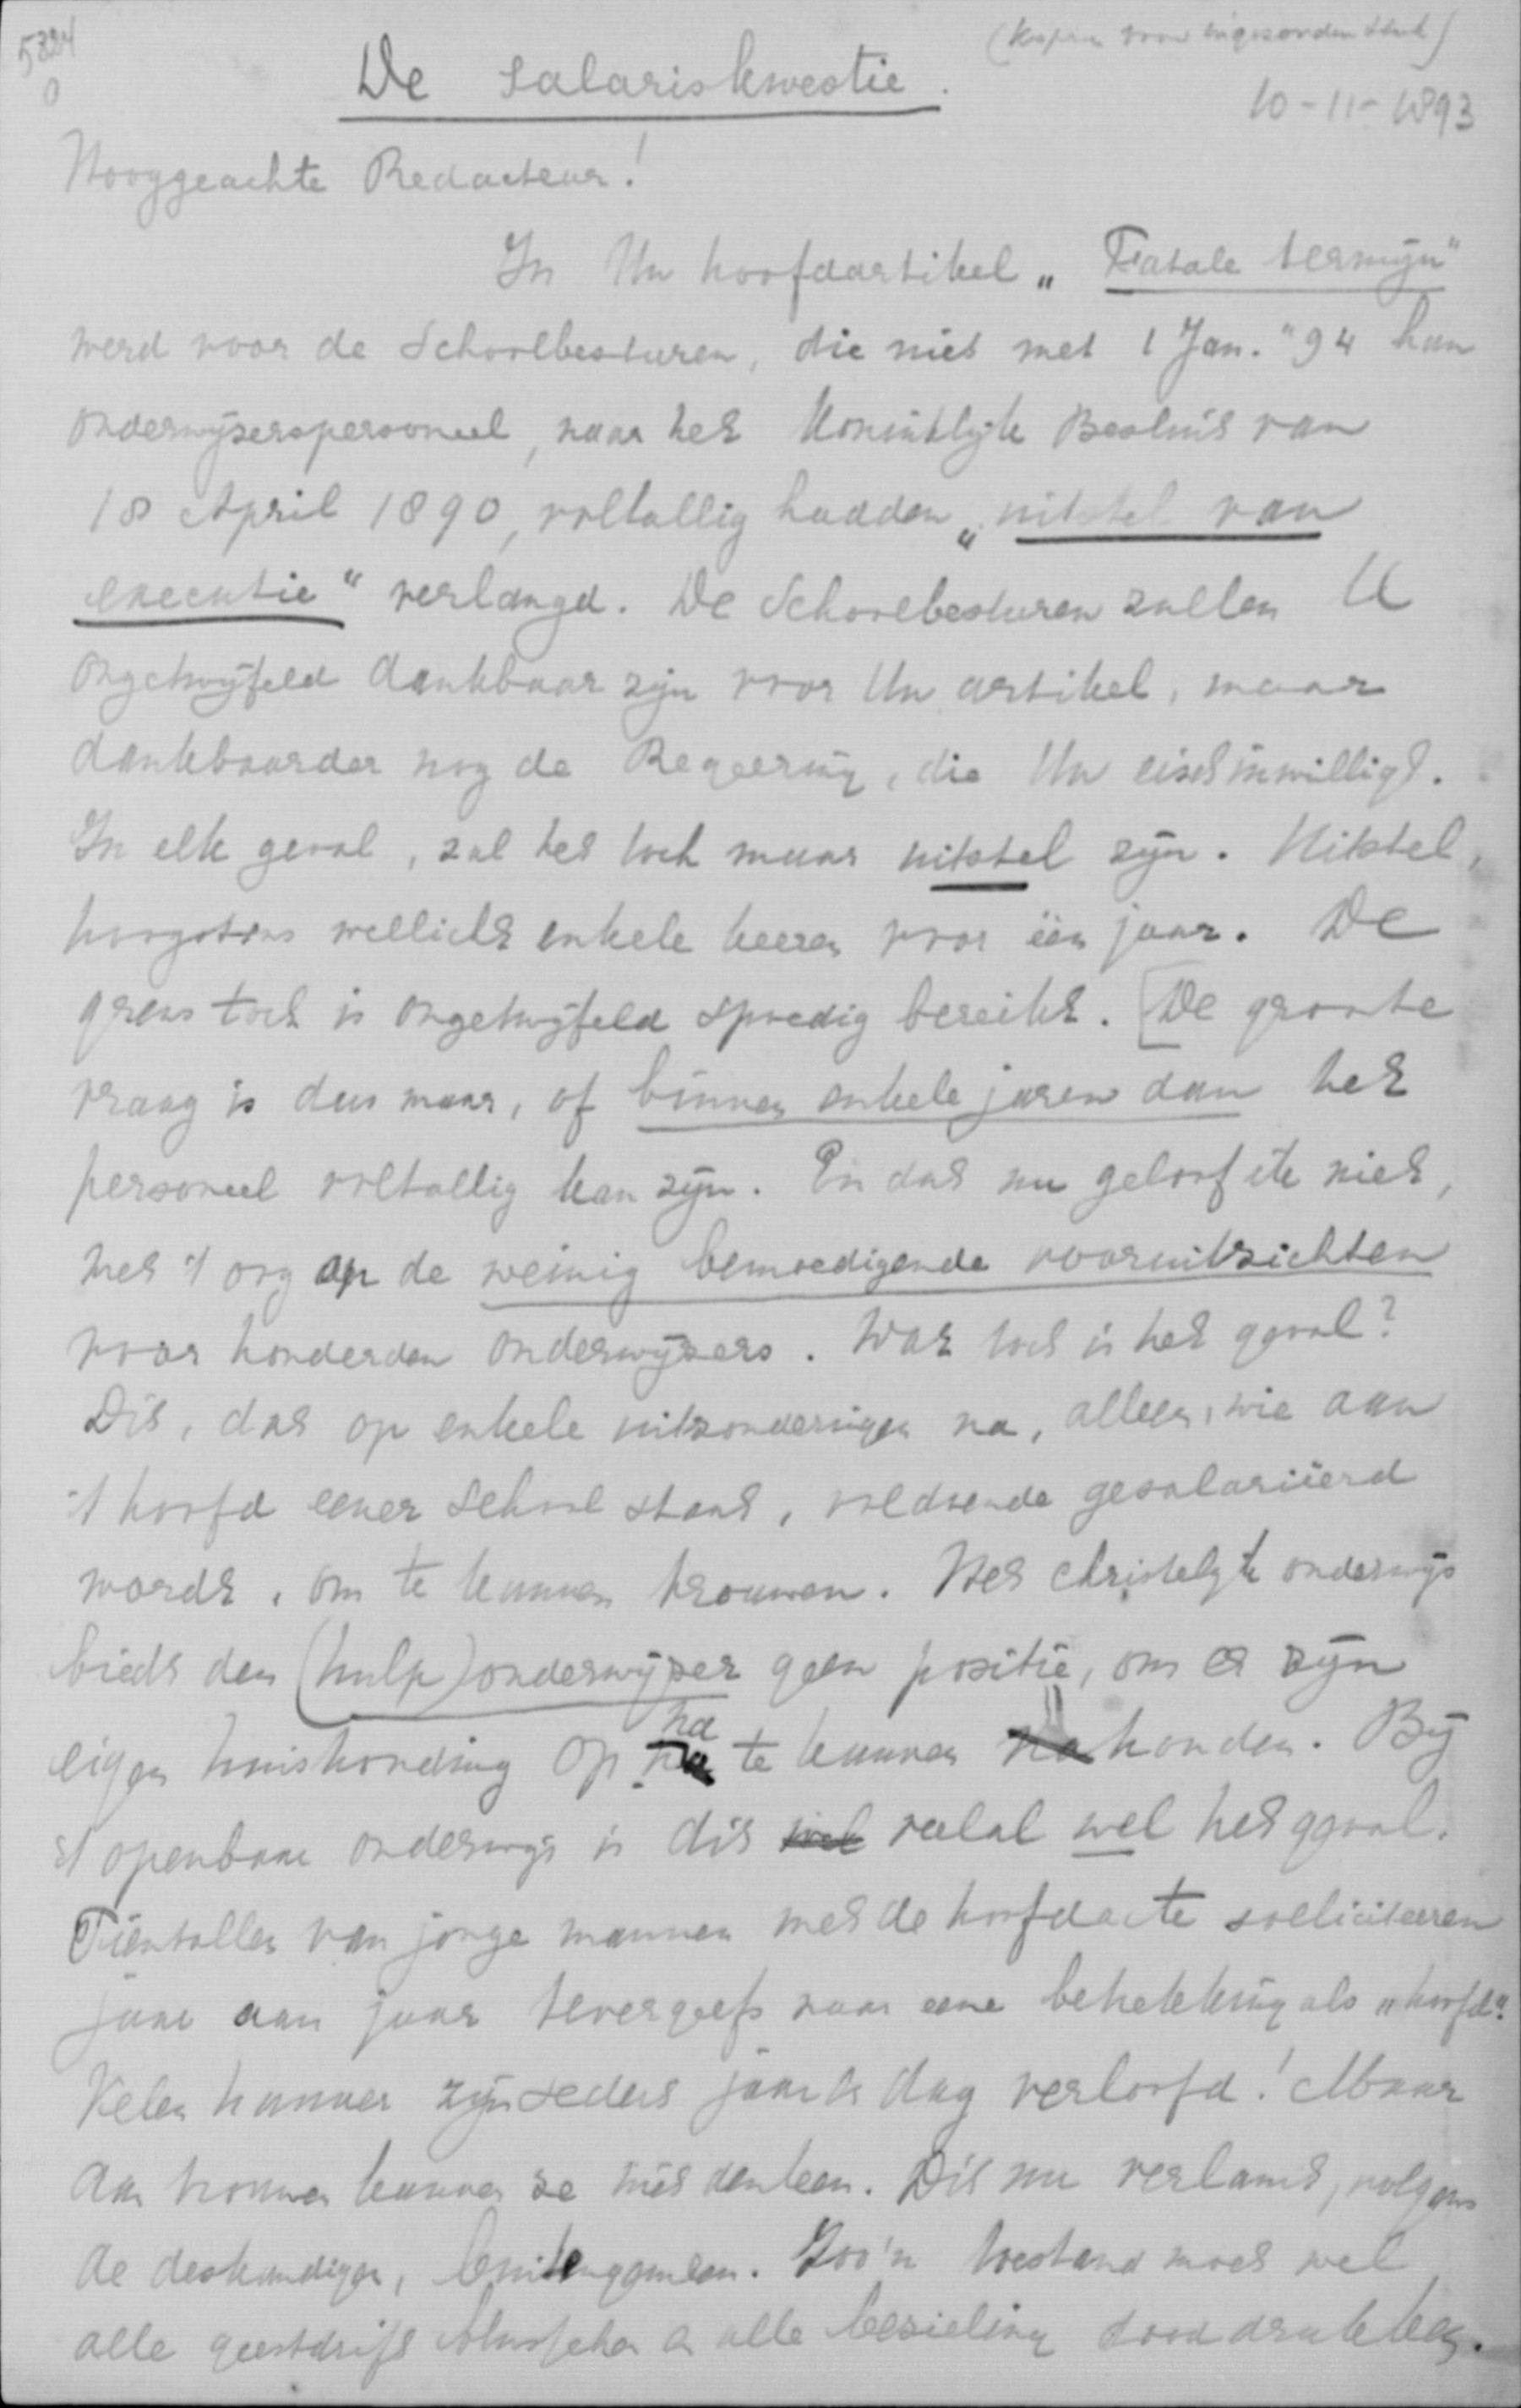 5324
0
(Kopie voor ingezonden stuk)
De Salariskwestie.
10-11-1893
Hooggeachte Redacteur!
In Uw hoofdartikel „Fatale termijn"
werd voor de Schoolbesturen, die niet met 1 Jan. "94 hun
onderwijzerspersoneel, naar het Koninklijk Besluit van
18 April 1890, voltallig hadden „uitstel van
executie" verlangd. De Schoolbesturen zullen U
ongetwijfeld dankbaar zijn voor Uw artikel, maar
dankbaarder nog de Regeering, die Uw eisch inwilligt.
In elk geval, zal het toch maar uitstel zijn. Uitstel,
hoogstens wellicht enkele keeren voor één jaar. De
grens toch is ongetwijfeld spoedig bereikt. [De groote
vraag is dus maar, of binnen enkele jaren dan het
personeel voltallig kan zijn. En dat nu geloof ik niet,
met 't oog op de weinig bemoedigende vooruitzichten
voor honderden onderwijzers. Wat toch is het geval?
Dit, dat op enkele uitzonderingen na, alleen, wie aan
't hoofd eener School staat, voldoende gesalariëerd
wordt, om te kunnen trouwen. Het christelijk onderwijs
biedt den (hulp)onderwijzer geen positie, om er zijn
eigen huishouding op na te kunnen houden. Bij
't openbaar onderwijs is dit wel veelal wel het geval.
Tientallen van jonge mannen met de hoofdacte solliciteeren
jaar aan jaar tevergeefs naar eene betrekking als „hoofd".
Velen hunner zijn sedert jaar en dag verloofd! Maar
aan trouwen kunnen ze niet denken. Dit nu verlamt, volgens
de deskundigen, buitengemeen. Zoo'n toestand moet wel
alle geestdrift blusschen en alle bezieling dooddrukken.